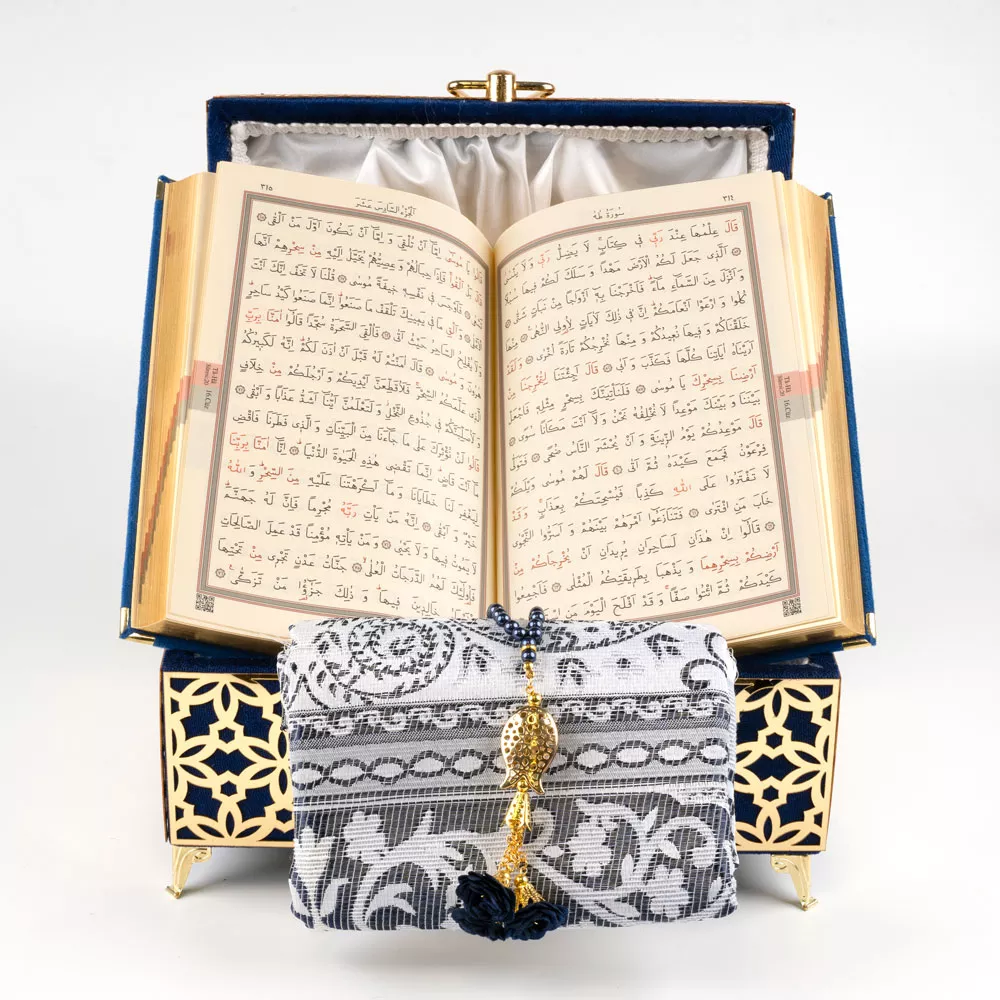 ٣١٤
سُورَةُ طٰهٰ
قَالَ عِلْمُهَا عِنْدَ رَبّ۪ي ف۪ي كِتَابٍۚ لَا يَضِلُّ رَبّ۪ي وَلَا يَنْسٰىۘ
۞ اَلَّذ۪ي جَعَلَ لَكُمُ الْاَرْضَ مَهْدًا وَسَلَكَ لَكُمْ ف۪يهَا سُبُلًا
وَاَنْزَلَ مِنَ السَّمَٓاءِ مَٓاءًۜ فَاَخْرَجْنَا بِه۪ٓ اَزْوَاجًا مِنْ نَبَاتٍ شَتّٰى ۞
كُلُوا وَارْعَوْا اَنْعَامَكُمْۜ اِنَّ ف۪ي ذٰلِكَ لَاٰيَاتٍ لِاُو۬لِي النُّهٰى ۞
خَلَقْنَاكُمْ وَف۪يهَا نُع۪يدُكُمْ وَمِنْهَا نُخْرِجُكُمْ تَارَةً اُخْرٰى ۞ وَلَقَدْ
اَرَيْنَاهُ اٰيَاتِنَا كُلَّهَا فَكَذَّبَ وَاَبٰى ۞ قَالَ اَجِئْتَنَا لِتُخْرِجَنَا مِنْ
اَرْضِنَا بِسِحْرِكَ يَا مُوسٰى ۞ فَلَنَأْتِيَنَّكَ بِسِحْرٍ مِثْلِه۪ فَاجْعَلْ
بَيْنَنَا وَبَيْنَكَ مَوْعِدًا لَا نُخْلِفُهُ نَحْنُ وَلَٓا اَنْتَ مَكَانًا سُوًى ۞
قَالَ مَوْعِدُكُمْ يَوْمُ الزّ۪ينَةِ وَاَنْ يُحْشَرَ النَّاسُ ضُحًى ۞ فَتَوَلّٰى
فِرْعَوْنُ فَجَمَعَ كَيْدَهُ ثُمَّ اَتٰى ۞ قَالَ لَهُمْ مُوسٰى وَيْلَكُمْ
لَا تَفْتَرُوا عَلَى اللّٰهِ كَذِبًا فَيُسْحِتَكُمْ بِعَذَابٍۚ وَقَدْ
خَابَ مَنِ افْتَرٰى ۞ فَتَنَازَعُٓوا اَمْرَهُمْ بَيْنَهُمْ وَاَسَرُّوا النَّجْوٰى
۞ قَالُٓوا اِنْ هٰذَانِ لَسَاحِرَانِ يُر۪يدَانِ اَنْ يُخْرِجَاكُمْ مِنْ
اَرْضِكُمْ بِسِحْرِهِمَا وَيَذْهَبَا بِطَر۪يقَتِكُمُ الْمُثْلٰى ۞ فَاَجْمِعُوا
كَيْدَكُمْ ثُمَّ ائْتُوا صَفًّاۚ وَقَدْ اَفْلَحَ الْيَوْمَ مَنِ
Tâ-Hâ
Sûresi 20
16.Cüz
٣١٥
اَلْجُزْءُ السَّادِسَ عَشَرَ
قَالُوا يَا مُوسٰٓى اِمَّٓا اَنْ تُلْقِيَ وَاِمَّٓا اَنْ نَكُونَ اَوَّلَ مَنْ اَلْقٰى ۞
قَالَ بَلْ اَلْقُواۚ فَاِذَا حِبَالُهُمْ وَعِصِيُّهُمْ يُخَيَّلُ اِلَيْهِ مِنْ سِحْرِهِمْ اَنَّهَا
تَسْعٰى ۞ فَاَوْجَسَ ف۪ي نَفْسِه۪ خ۪يفَةً مُوسٰى ۞ قُلْنَا لَا تَخَفْ اِنَّكَ اَنْتَ
الْاَعْلٰى ۞ وَاَلْقِ مَا ف۪ي يَم۪ينِكَ تَلْقَفْ مَا صَنَعُواۜ اِنَّمَا صَنَعُوا كَيْدُ سَاحِرٍۜ
وَلَا يُفْلِحُ السَّاحِرُ حَيْثُ اَتٰى ۞ فَاُلْقِيَ السَّحَرَةُ سُجَّدًا قَالُٓوا اٰمَنَّا بِرَبِّ
هٰرُونَ وَمُوسٰى ۞ قَالَ اٰمَنْتُمْ لَهُ قَبْلَ اَنْ اٰذَنَ لَكُمْۜ اِنَّهُ لَكَب۪يرُكُمُ
الَّذ۪ي عَلَّمَكُمُ السِّحْرَۚ فَلَاُقَطِّعَنَّ اَيْدِيَكُمْ وَاَرْجُلَكُمْ مِنْ خِلَافٍ
وَلَاُصَلِّبَنَّكُمْ ف۪ي جُذُوعِ النَّخْلِۘ وَلَتَعْلَمُنَّ اَيُّنَٓا اَشَدُّ عَذَابًا وَاَبْقٰى ۞
قَالُوا لَنْ نُؤْثِرَكَ عَلٰى مَا جَٓاءَنَا مِنَ الْبَيِّنَاتِ وَالَّذ۪ي فَطَرَنَا فَاقْضِ
مَٓا اَنْتَ قَاضٍۜ اِنَّمَا تَقْض۪ي هٰذِهِ الْحَيٰوةَ الدُّنْيَاۜ ۞ اِنَّٓا اٰمَنَّا بِرَبِّنَا
لِيَغْفِرَ لَنَا خَطَايَانَا وَمَٓا اَكْرَهْتَنَا عَلَيْهِ مِنَ السِّحْرِۜ وَاللّٰهُ
خَيْرٌ وَاَبْقٰى ۞ اِنَّهُ مَنْ يَأْتِ رَبَّهُ مُجْرِمًا فَاِنَّ لَهُ جَهَنَّمَۜ
لَا يَمُوتُ ف۪يهَا وَلَا يَحْيٰى ۞ وَمَنْ يَأْتِه۪ مُؤْمِنًا قَدْ عَمِلَ الصَّالِحَاتِ
فَاُو۬لٰٓئِكَ لَهُمُ الدَّرَجَاتُ الْعُلٰىۙ ۞ جَنَّاتُ عَدْنٍ تَجْر۪ي مِنْ تَحْتِهَا
خَالِد۪ينَ ف۪يهَاۜ وَذٰلِكَ جَزٰٓؤُ۬ا مَنْ تَزَكّٰى۟ ۞
Tâ-Hâ
Sûresi 20
16.Cüz